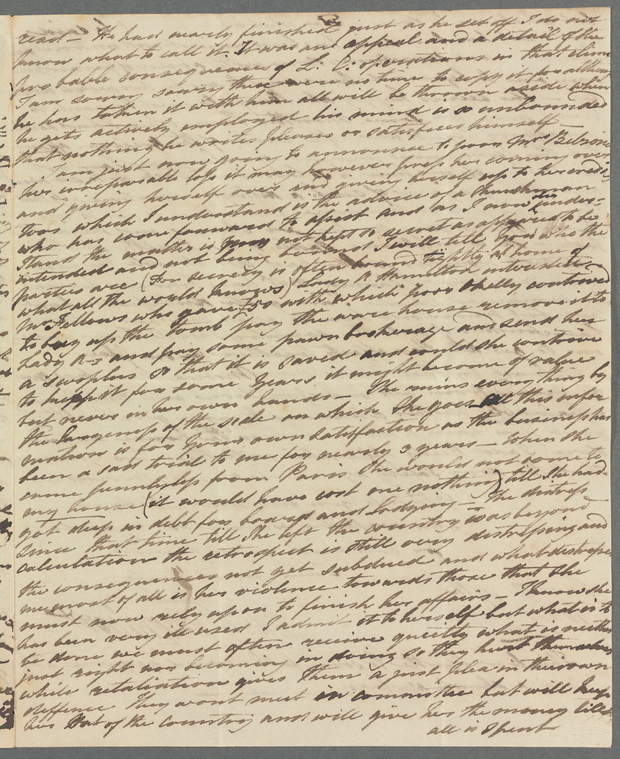 read – He had nearly finished just as he set off I do not
know what to call it. It was an appeal and a detail of the
probable consequences of L. C. operations in that clime
I am sorry, sorry there were no time to copy it for altho
he has taken it with him all will be thrown aside when
he gets actively employed his mind is so unbounded
that nothing he writes pleases or satisfies himself –
I am just now going to announce to poor Mrs
her irreparable loss it may however prep her coming over
and giving herself over and given herself up to her credi-
tors which I understand is the advice of a Churchman
who has come forward to assist and as I now under-
stand the matter is not kept so secret as appeared to be
intended and not being bound I will tell you who the
parties are (for secrecy is often bound to folly at home of
what all the world knows) Lady R Hamilton interested
Mr Fellows who gave £50 with which poor Shelly contrived
to buy up the Tomb pay the ware house remove it to
Lady R– and pay some pawn brokerage and send her
a surplus so that it is saved and could she contrive
to keep it for some years, it might become of value
but never in her own hands – She ruins every thing by
the largeness of the scale on which she goes – all this infor
mation is for your own satisfaction as the business has
been a sad trial to me for nearly 3 years – when she
came pennyless from Paris she would not come to
my house (it would have cost me nothing) till she had
got deep in debt for board and Lodging – The distress
since that time till she left the country is beyond
calculation the retrospect is still very distressing and
the consequences not yet subdued and what distresses
me most of all is her violence towards those that she
must now rely upon to finish her affairs – I know she
has been very ill used I admit it to herself but what is to
be done we must often receive quietly what is neither
just right nor becoming in doing so they hurt themselves
while retaliation gives them a just plea in their own
deffence They wont meet in committee but will keep
her out of the Country and will give her the money till
all is spent